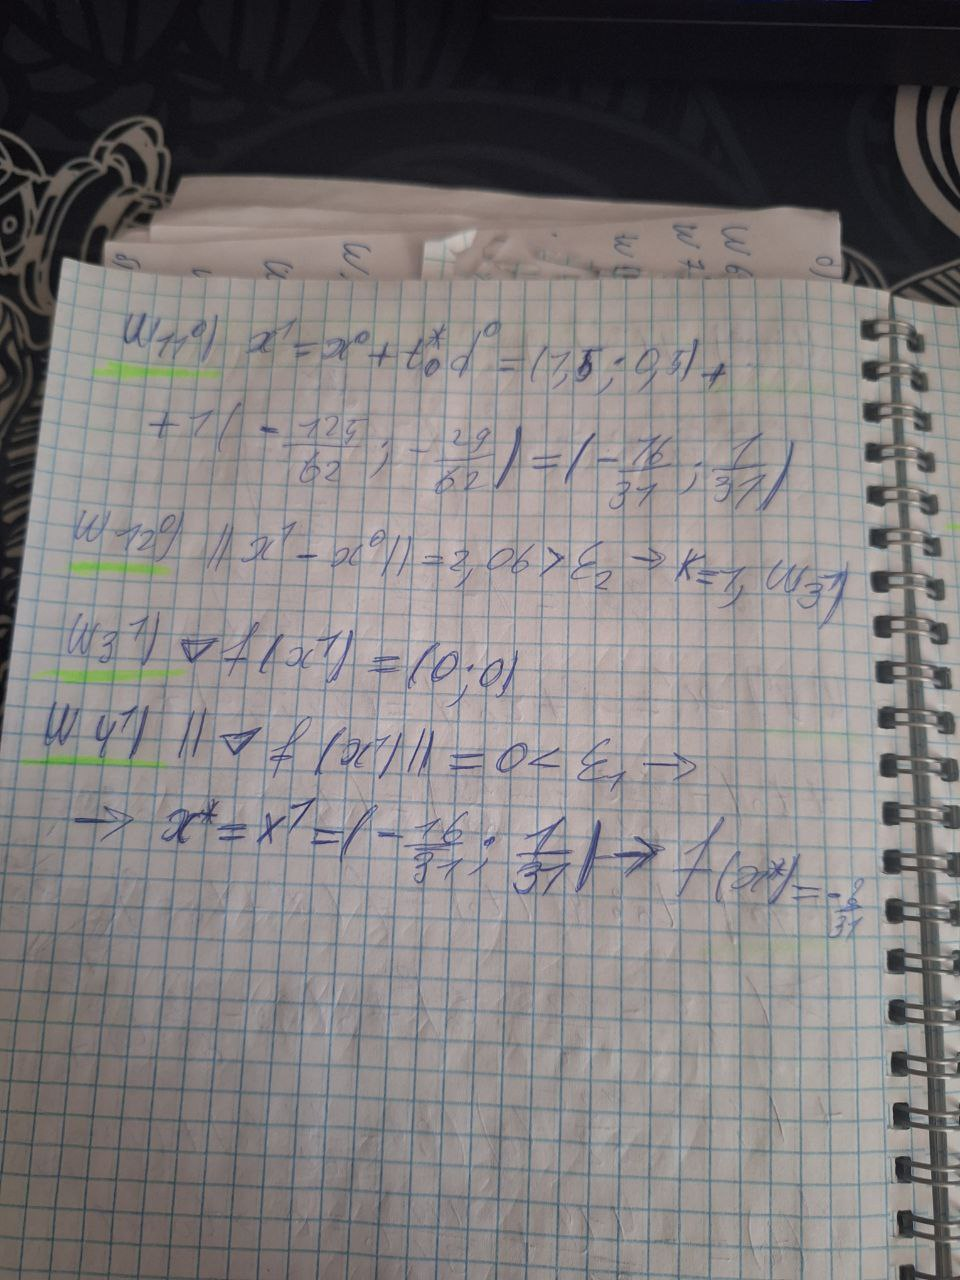 ш11⁰) x¹ = x⁰ + t₀* d⁰ = (1,5; 0,5) +
+ 1 ( - 125/62 ; - 29/62 ) = ( - 16/31 ; 1/31 )
ш12⁰) ||x¹ - x⁰|| = 2,06 > ε₂ → k=1, ш3¹)
ш3¹) ▽f(x¹) = (0; 0)
ш4¹) ||▽f(x¹)|| = 0 < ε₁ →
→ x* = x¹ = ( - 16/31 ; 1/31 ) → f(x*) = -8/31